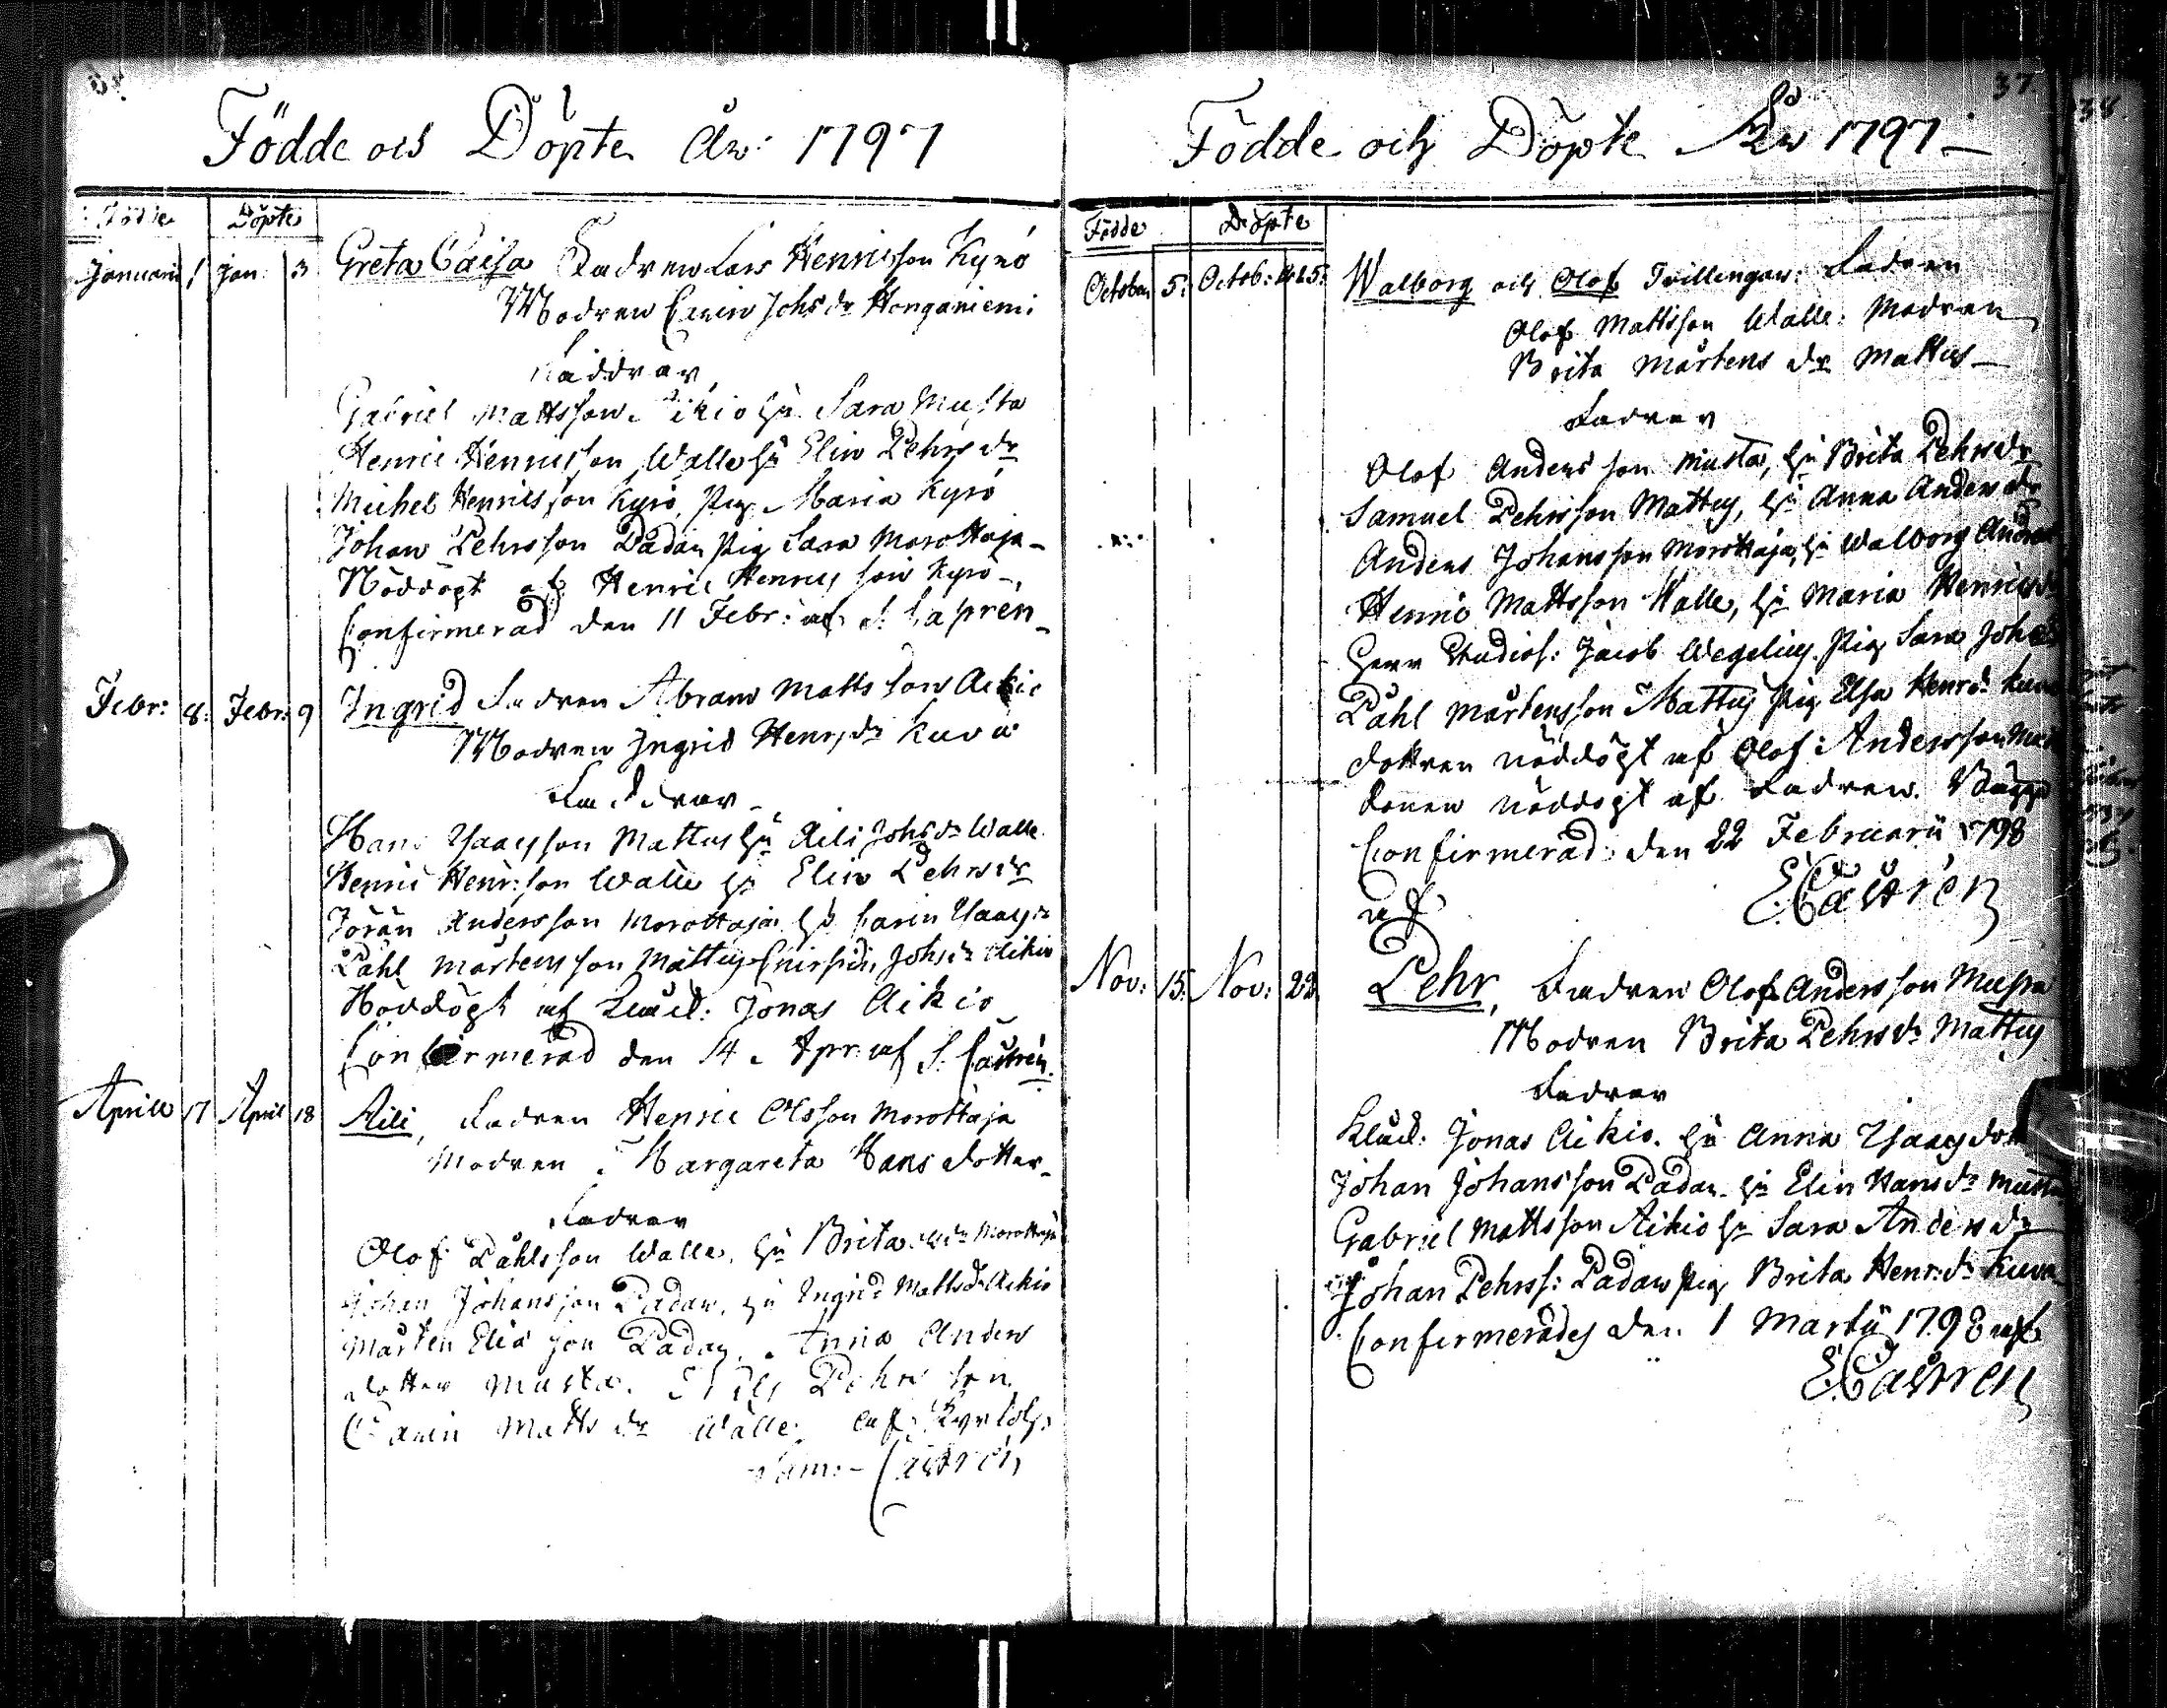 Födde och Döpte År 1797
Födde Döpte
Januarii 1 Jan: 3 Greta Caisa Fadren Lars Henricsson Kyrö
Modren Carin Johs dr Honganiemi
Faddrar
Gabriel Mattsson Aikio hu Sara Musta
Henric Henricsson Walle hu Elin Pehrs dr
Michel Henricsson Kyrö, Pig Maria Kyrö
Johan Pehrsson Padar Pig Sara Morottaja
Nöddöpt af Henric Henricsson Kyrö
Confirmerad den 11 Febr: af
Febr: 8 Febr: 9 Ingrid Fadren Abram Mattsson Aikio
Modren Ingrid Henr dr Kuva
Faddrar
Hans Isacsson Mattus hu Aili Johs dr Walle
Henric Henr: son Walle hu Elin Pehrs dr
Jöran Andersson Morottaja hu Carin Isacs dr
Påhl Mårtensson Mattus Johs dr Aikio
Nöddöpt af Jonas Aikio
Confirmerad den 14 Apr: af S. Castrén
Aprill 17 April 18 Aili, Fadren Henric Olsson Morottaja
Modren Margareta Hans dotter
Fadrar
Olof Påhlsson Walle, hu Brita Morottaja
Johan Johansson Padar, hu Ingrid Matts dr Aikio
Mårten Eliasson Padar, Anna Anders
dotter Musta. Nils Pehrsson
Carin Matts dr Walle. af
Sam: Castrén
37
Födde och Döpte År 1797
Födde Döpte
October 5: Octob: 5: Walborg och Olof Tvillingar: Fadren
Olof Mattsson Walle. Modren
Brita Mårtens dr Mattus
Fadrar
Olof Andersson Musta, hu Brita Pehrs dr
Samuel Pehrsson Mattus, hu Anna Anders dr
Anders Johansson Morottaja, hu Walborg Anders
Henric Mattsson Walle, hu Maria Henrics dr
Herr Studios: Jacob Wegelius. Pig Sara Johs
Påhl Mårtensson Mattus Pig Elsa Henr dr Kuva
dottren nöddöpt af Olof Andersson
sonen nöddöpt af Fadren. Bägge
Confirmerad: den 22 Februarii 1798
af E. Castrén
Nov: 15. Nov: 22 Pehr, Fadren Olof Andersson Musta
Modren Brita Pehrs dr Mattus
Fadrar
Jonas Aikio. hu Anna Isacs dotter
Johan Johansson Padar. hu Elin Hans dr Musta
Gabriel Mattsson Aikio hu Sara Anders dr
Johan Pehrss: Padar Pig Brita Henr: dr Kuva
Confirmerades den 1 Martii 1798 af
E. Castren
38